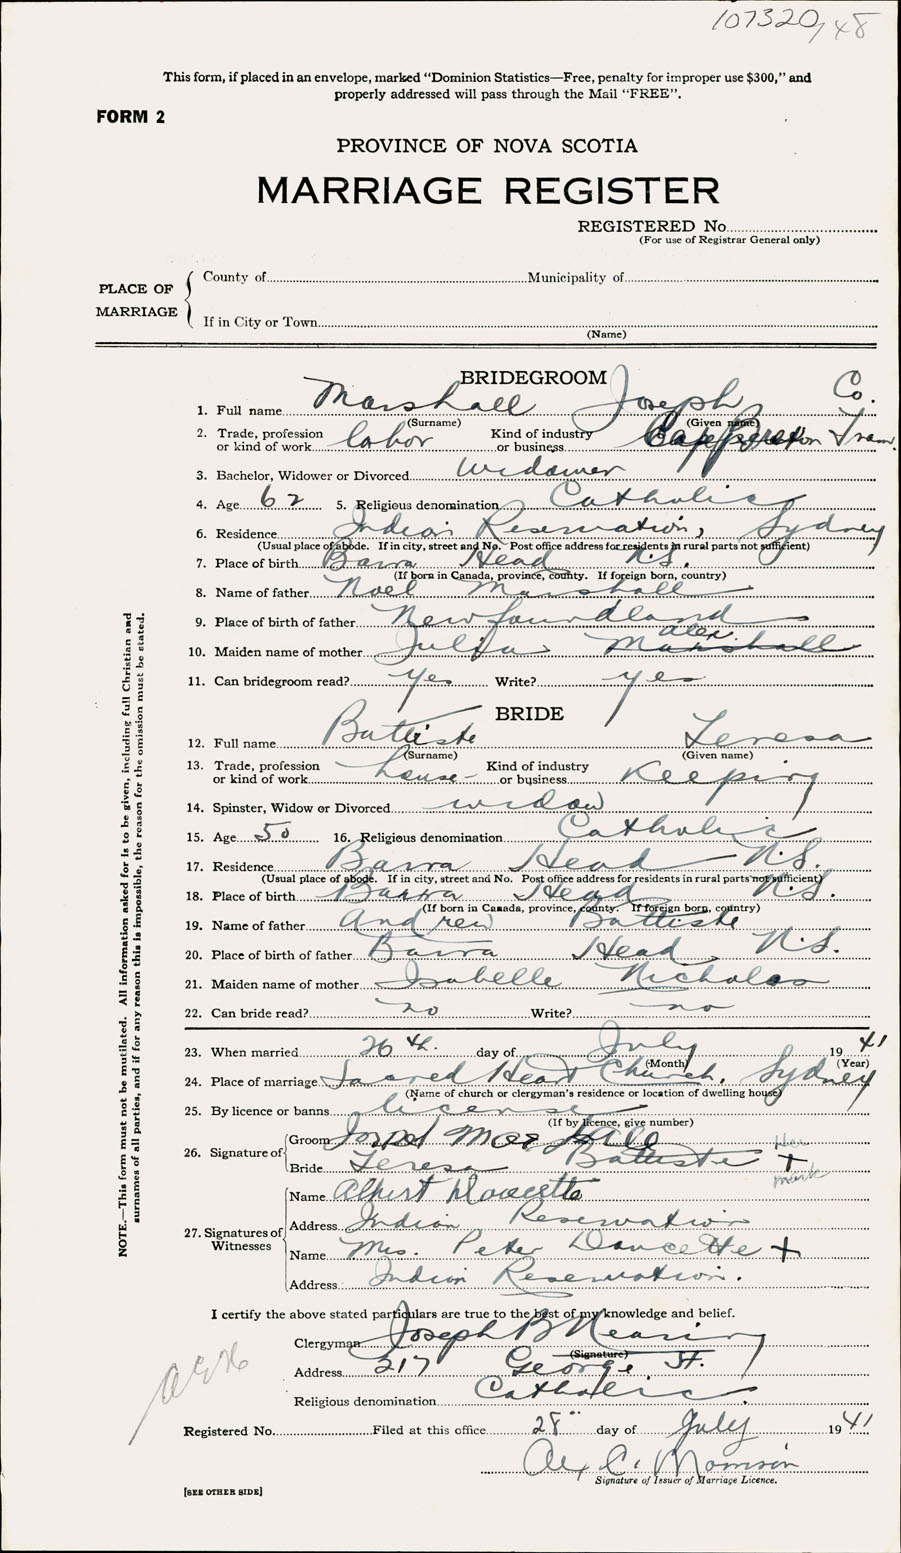 107320/48
This form, if placed in an envelope, marked "Dominion Statistics—Free, penalty for improper use $300," and
properly addressed will pass through the Mail "FREE".
FORM 2
PROVINCE OF NOVA SCOTIA
MARRIAGE REGISTER
REGISTERED No.
(For use of Registrar General only)
PLACE OF MARRIAGE
County of Municipality of
If in City or Town
(Name)
BRIDEGROOM
1. Full name Marshall Joseph Co.
(Surname) (Given name)
2. Trade, profession or kind of work labor Kind of industry or business Cape Breton Tram
3. Bachelor, Widower or Divorced widower
4. Age 62 5. Religious denomination Catholic
6. Residence Indian Reservation, Sydney
(Usual place of abode. If in city, street and No. Post office address for residents in rural parts not sufficient)
7. Place of birth Barra Head N.S.
(If born in Canada, province, county. If foreign born, country)
8. Name of father Noel Marshall
9. Place of birth of father Newfoundland
10. Maiden name of mother Julia Marshall Alex.
11. Can bridegroom read? Yes Write? yes
BRIDE
12. Full name Battiste Teresa
(Surname) (Given name)
13. Trade, profession or kind of work house- Kind of industry or business Keeping
14. Spinster, Widow or Divorced widow
15. Age 50 16. Religious denomination Catholic
17. Residence Barra Head N.S.
(Usual place of abode. If in city, street and No. Post office address for residents in rural parts not sufficient)
18. Place of birth Barra Head N.S.
(If born in Canada, province, county. If foreign born, country)
19. Name of father Andrew Battiste
20. Place of birth of father Barra Head, N.S.
21. Maiden name of mother Isabelle Nicholas
22. Can bride read? no Write? no
23. When married 26th. day of July 1941
(Month) (Year)
24. Place of marriage Sacred Heart Church, Sydney
(Name of church or clergyman's residence or location of dwelling house)
25. By licence or banns license
(If by licence, give number)
26. Signature of Groom Marshall
Bride Teresa Battiste her + mark
27. Signatures of Witnesses
Name Albert Doucette
Address Indian Reservation
Name Mrs. Peter Doucette +
Address Indian Reservation.
I certify the above stated particulars are true to the best of my knowledge and belief.
Clergyman Joseph B Nearing
(Signature)
Address 217 George St.
Religious denomination Catholic
Registered No. Filed at this office 28" day of July 1941
Alex C. Morrison
Signature of Issuer of Marriage Licence.
[SEE OTHER SIDE]
NOTE.—This form must not be mutilated. All information asked for is to be given, including full Christian and
surnames of all parties, and if for any reason this is impossible, the reason for the omission must be stated.